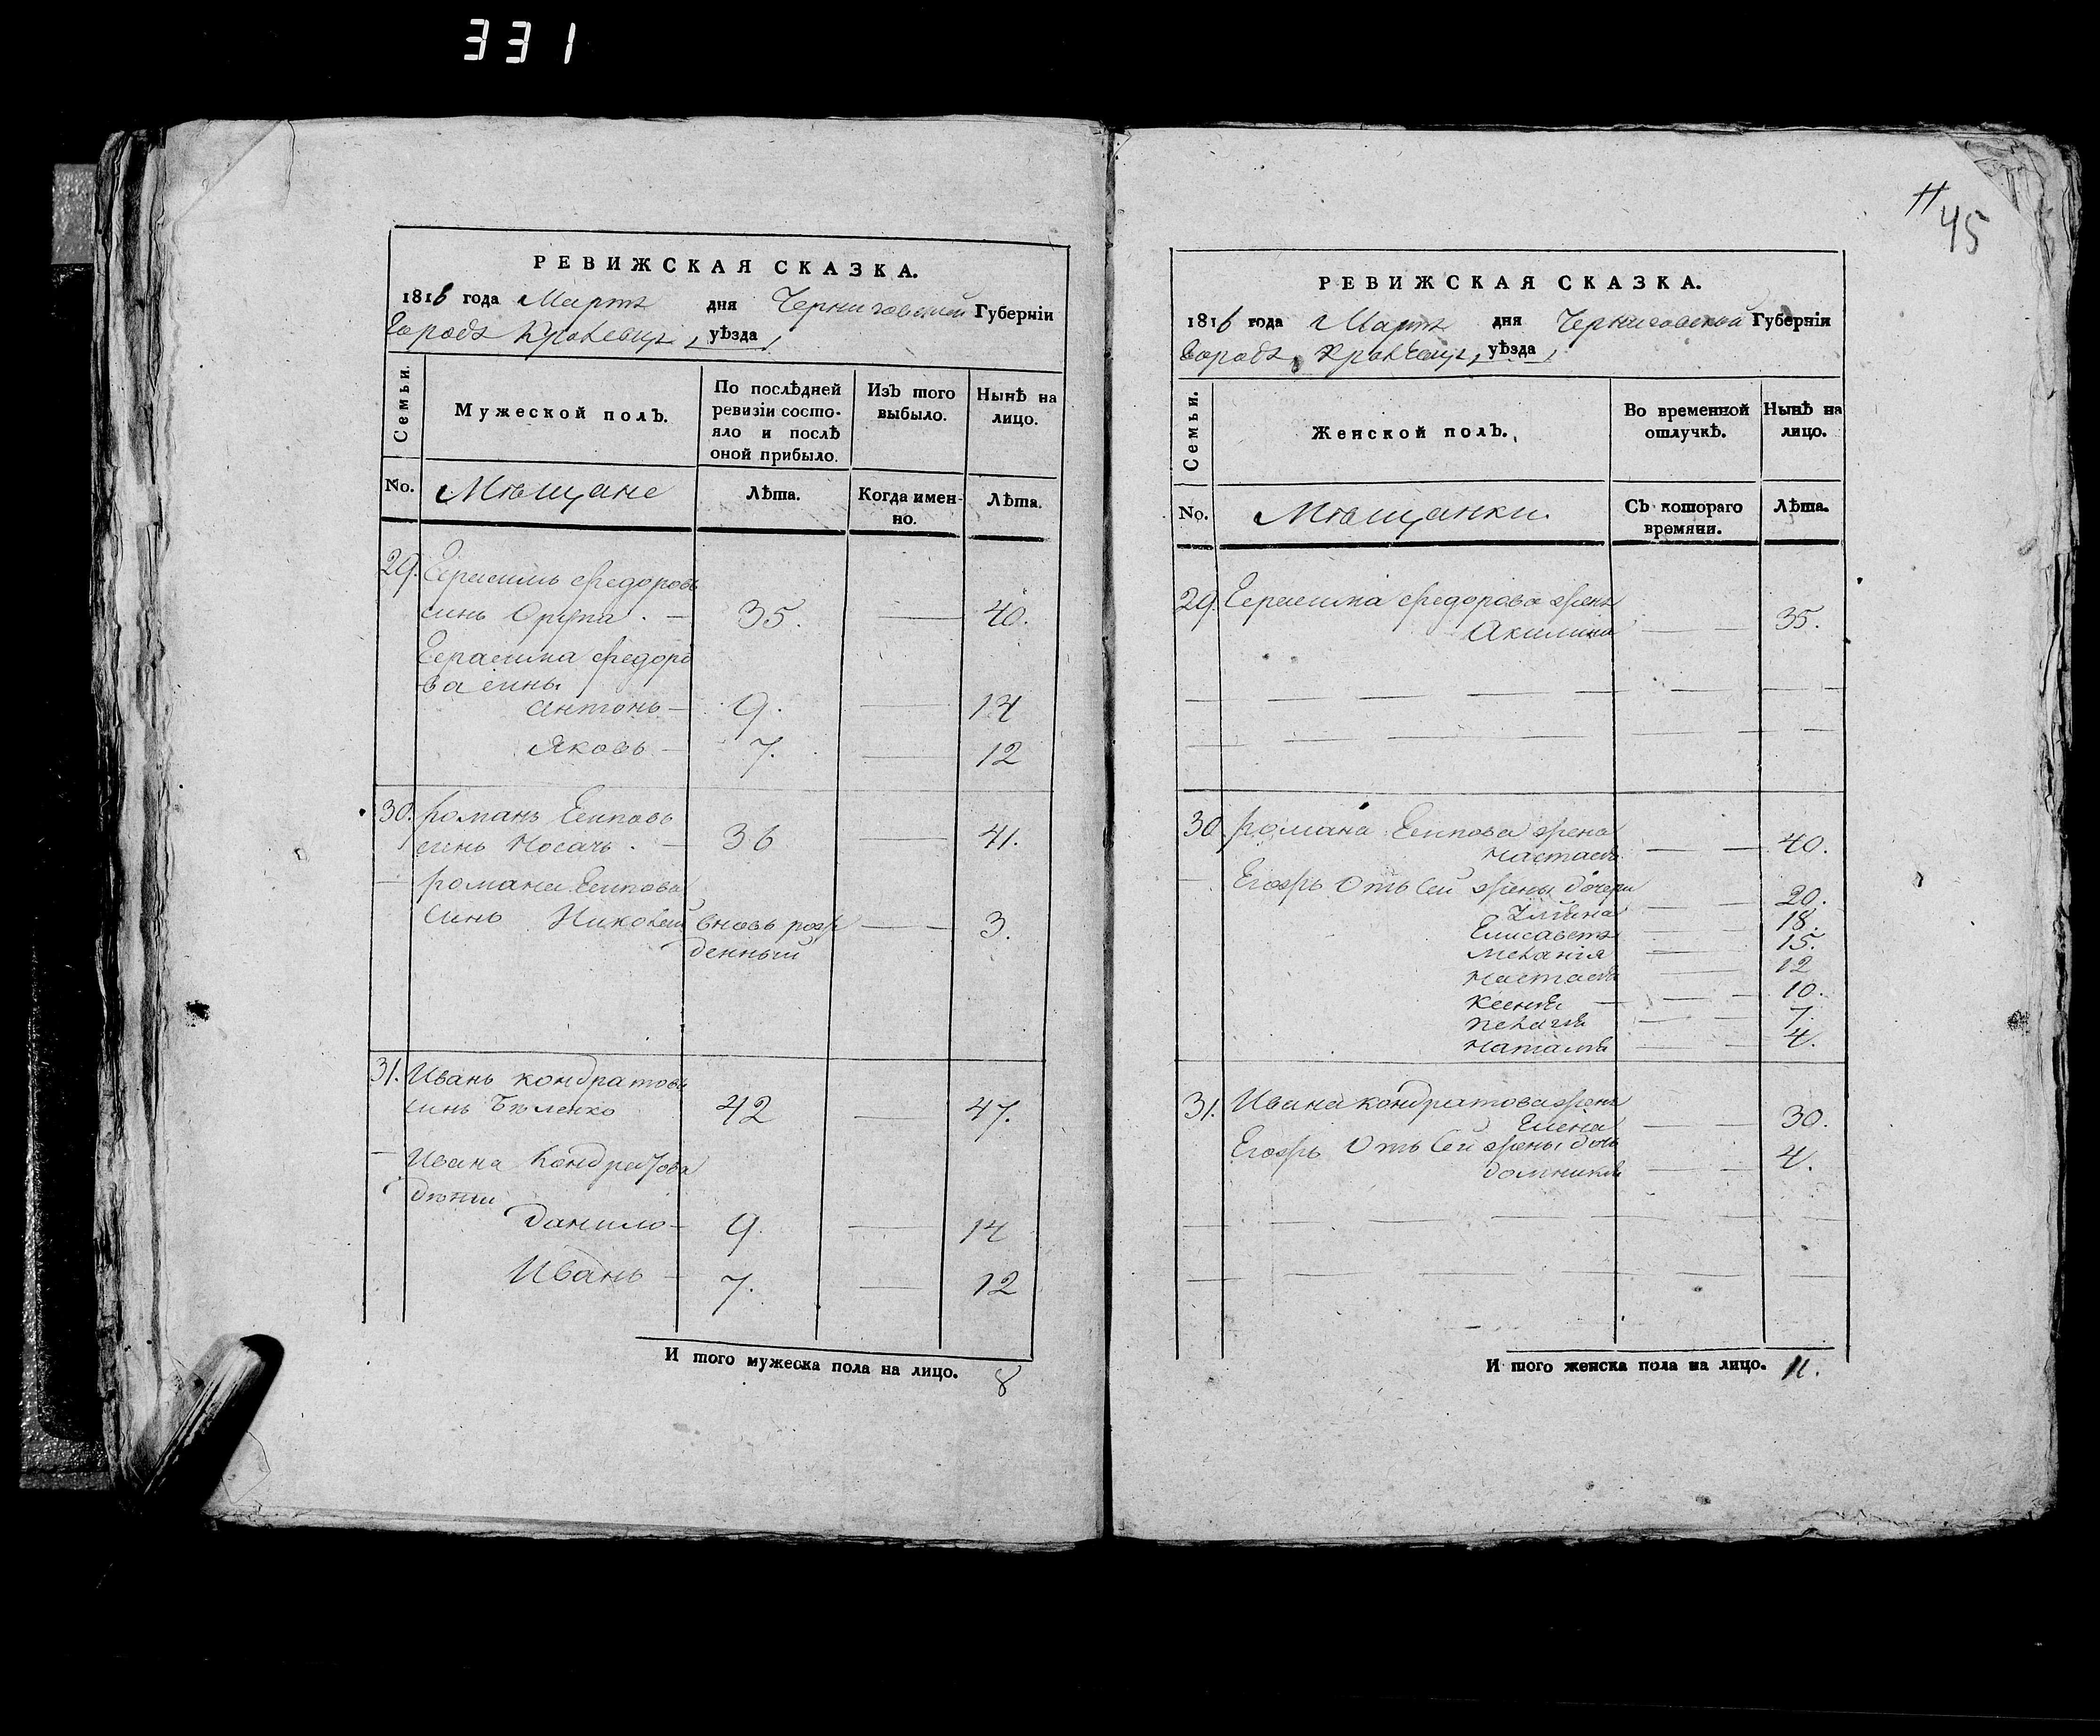 331
РЕВИЖСКАЯ СКАЗКА.
1816 года Марта дня Черниговской Губерніи
Города Кролевца, уѣзда,
Семьи.
Мужеской полъ.
По послѣдней ревизіи состо-
яло и послѣ оной прибыло.
Изъ того выбыло.
Нынѣ на лицо.
No. Мѣщане
Лѣта.
Когда имен-
но.
Лѣта.
29. Герасимъ Федоровъ
синъ 35. 40.
Герасима Федоро
ва сины
Антонъ 9. 14
Яковъ 7. 12
30. Романъ Есиповъ
синъ Носачъ. 36 41.
Романа Есипова
синъ Николай вновь рож 3.
денный
31. Иванъ Кондратовъ
синъ Бѣленко 42 47.
Ивана Кондратова
дѣти
Данило 9. 14
Иванъ 7. 12
И того мужеска пола на лицо. 8
11
45
РЕВИЖСКАЯ СКАЗКА.
1816 года Марта дня Черниговской Губерніи
Города Кролевца, уѣзда,
Семьи.
Женской полъ.
Во временной отлучкѣ.
Нынѣ на лицо.
No. Мѣщанки.
Съ котораго времяни.
Лѣта.
29. Герасима Федорова жена
Акилина 35.
30. Романа Есипова жена
Настасія 40.
Егожъ отъ сей жены дочери
Уліяна 20.
Елисавета 18.
Меланія 15.
Настасія 12
Ксенія 10.
Пелагія 7.
Наталія 4.
31. Ивана Кондратова жена
Елена 30.
Егожъ отъ сей жены дочь
Домникія 4.
И того женска пола на лицо. 11.